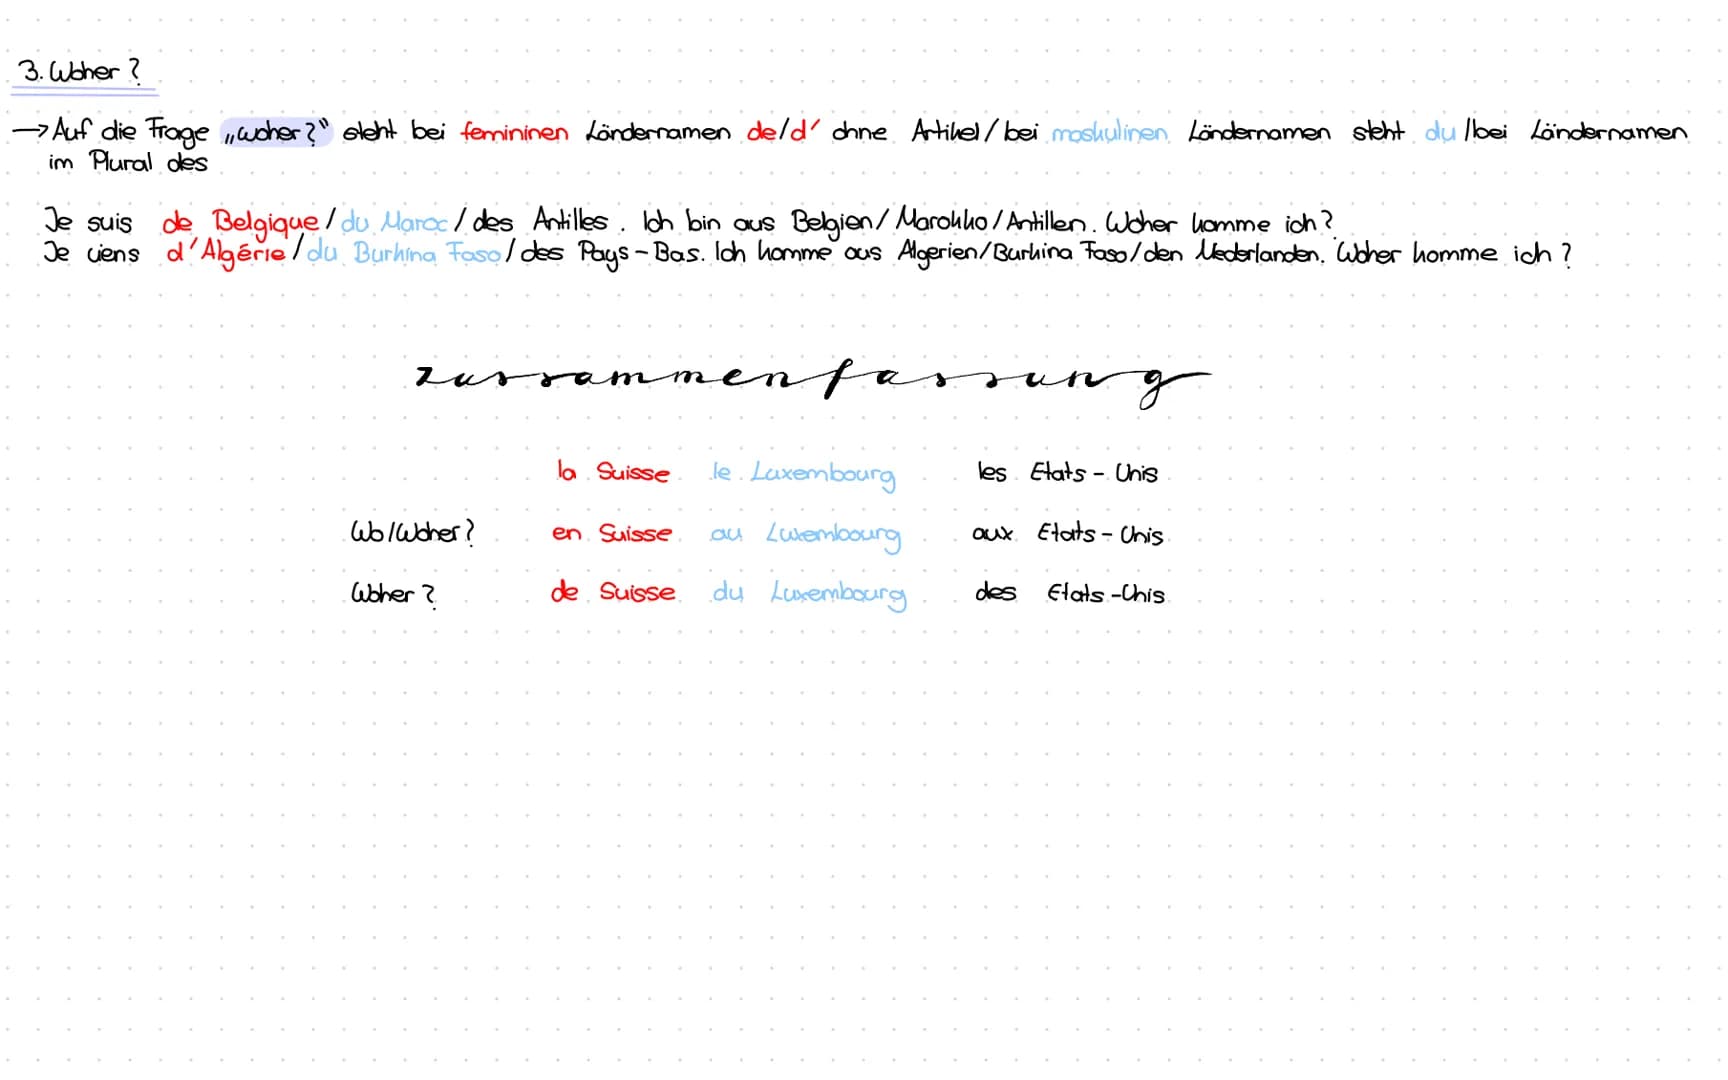 3. Woher?
→ Auf die Frage „woher?" steht bei femininen Ländernamen de/d' ohne Artikel / bei maskulinen Ländernamen steht du / bei Ländernamen
im Plural des
Je suis de Belgique / du Maroc / des Antilles. Ich bin aus Belgien / Marokko / Antillen. Woher komme ich?
Je viens d'Algérie / du Burkina Faso / des Pays-Bas. Ich komme aus Algerien / Burkina Faso / den Niederlanden. Woher komme ich?
zusammenfassung
la Suisse le Luxembourg les Etats-Unis
Wo/Woher? en Suisse au Luxembourg aux Etats-Unis
Woher? de Suisse du Luxembourg des Etats-Unis